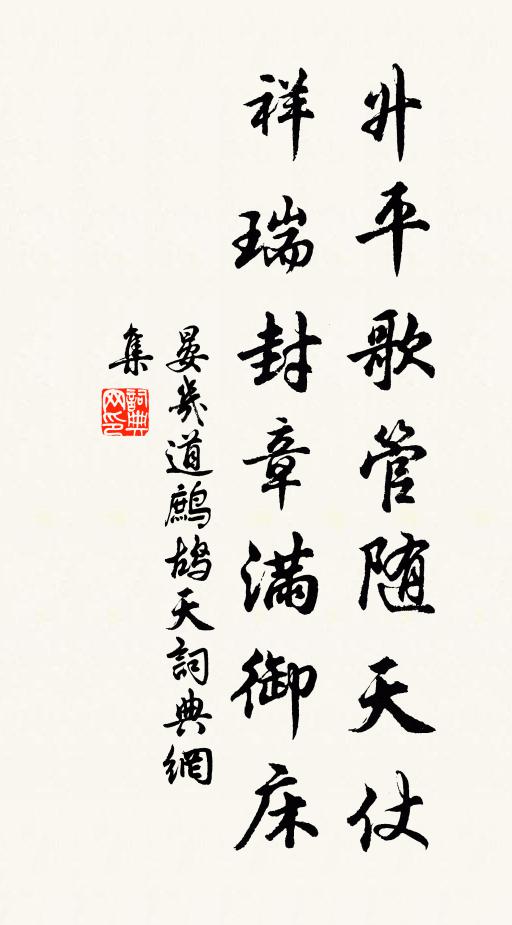 升平歌管随天仗
祥瑞封章满御床
晏幾道鷓鴣天詞典網
集
詞典网印